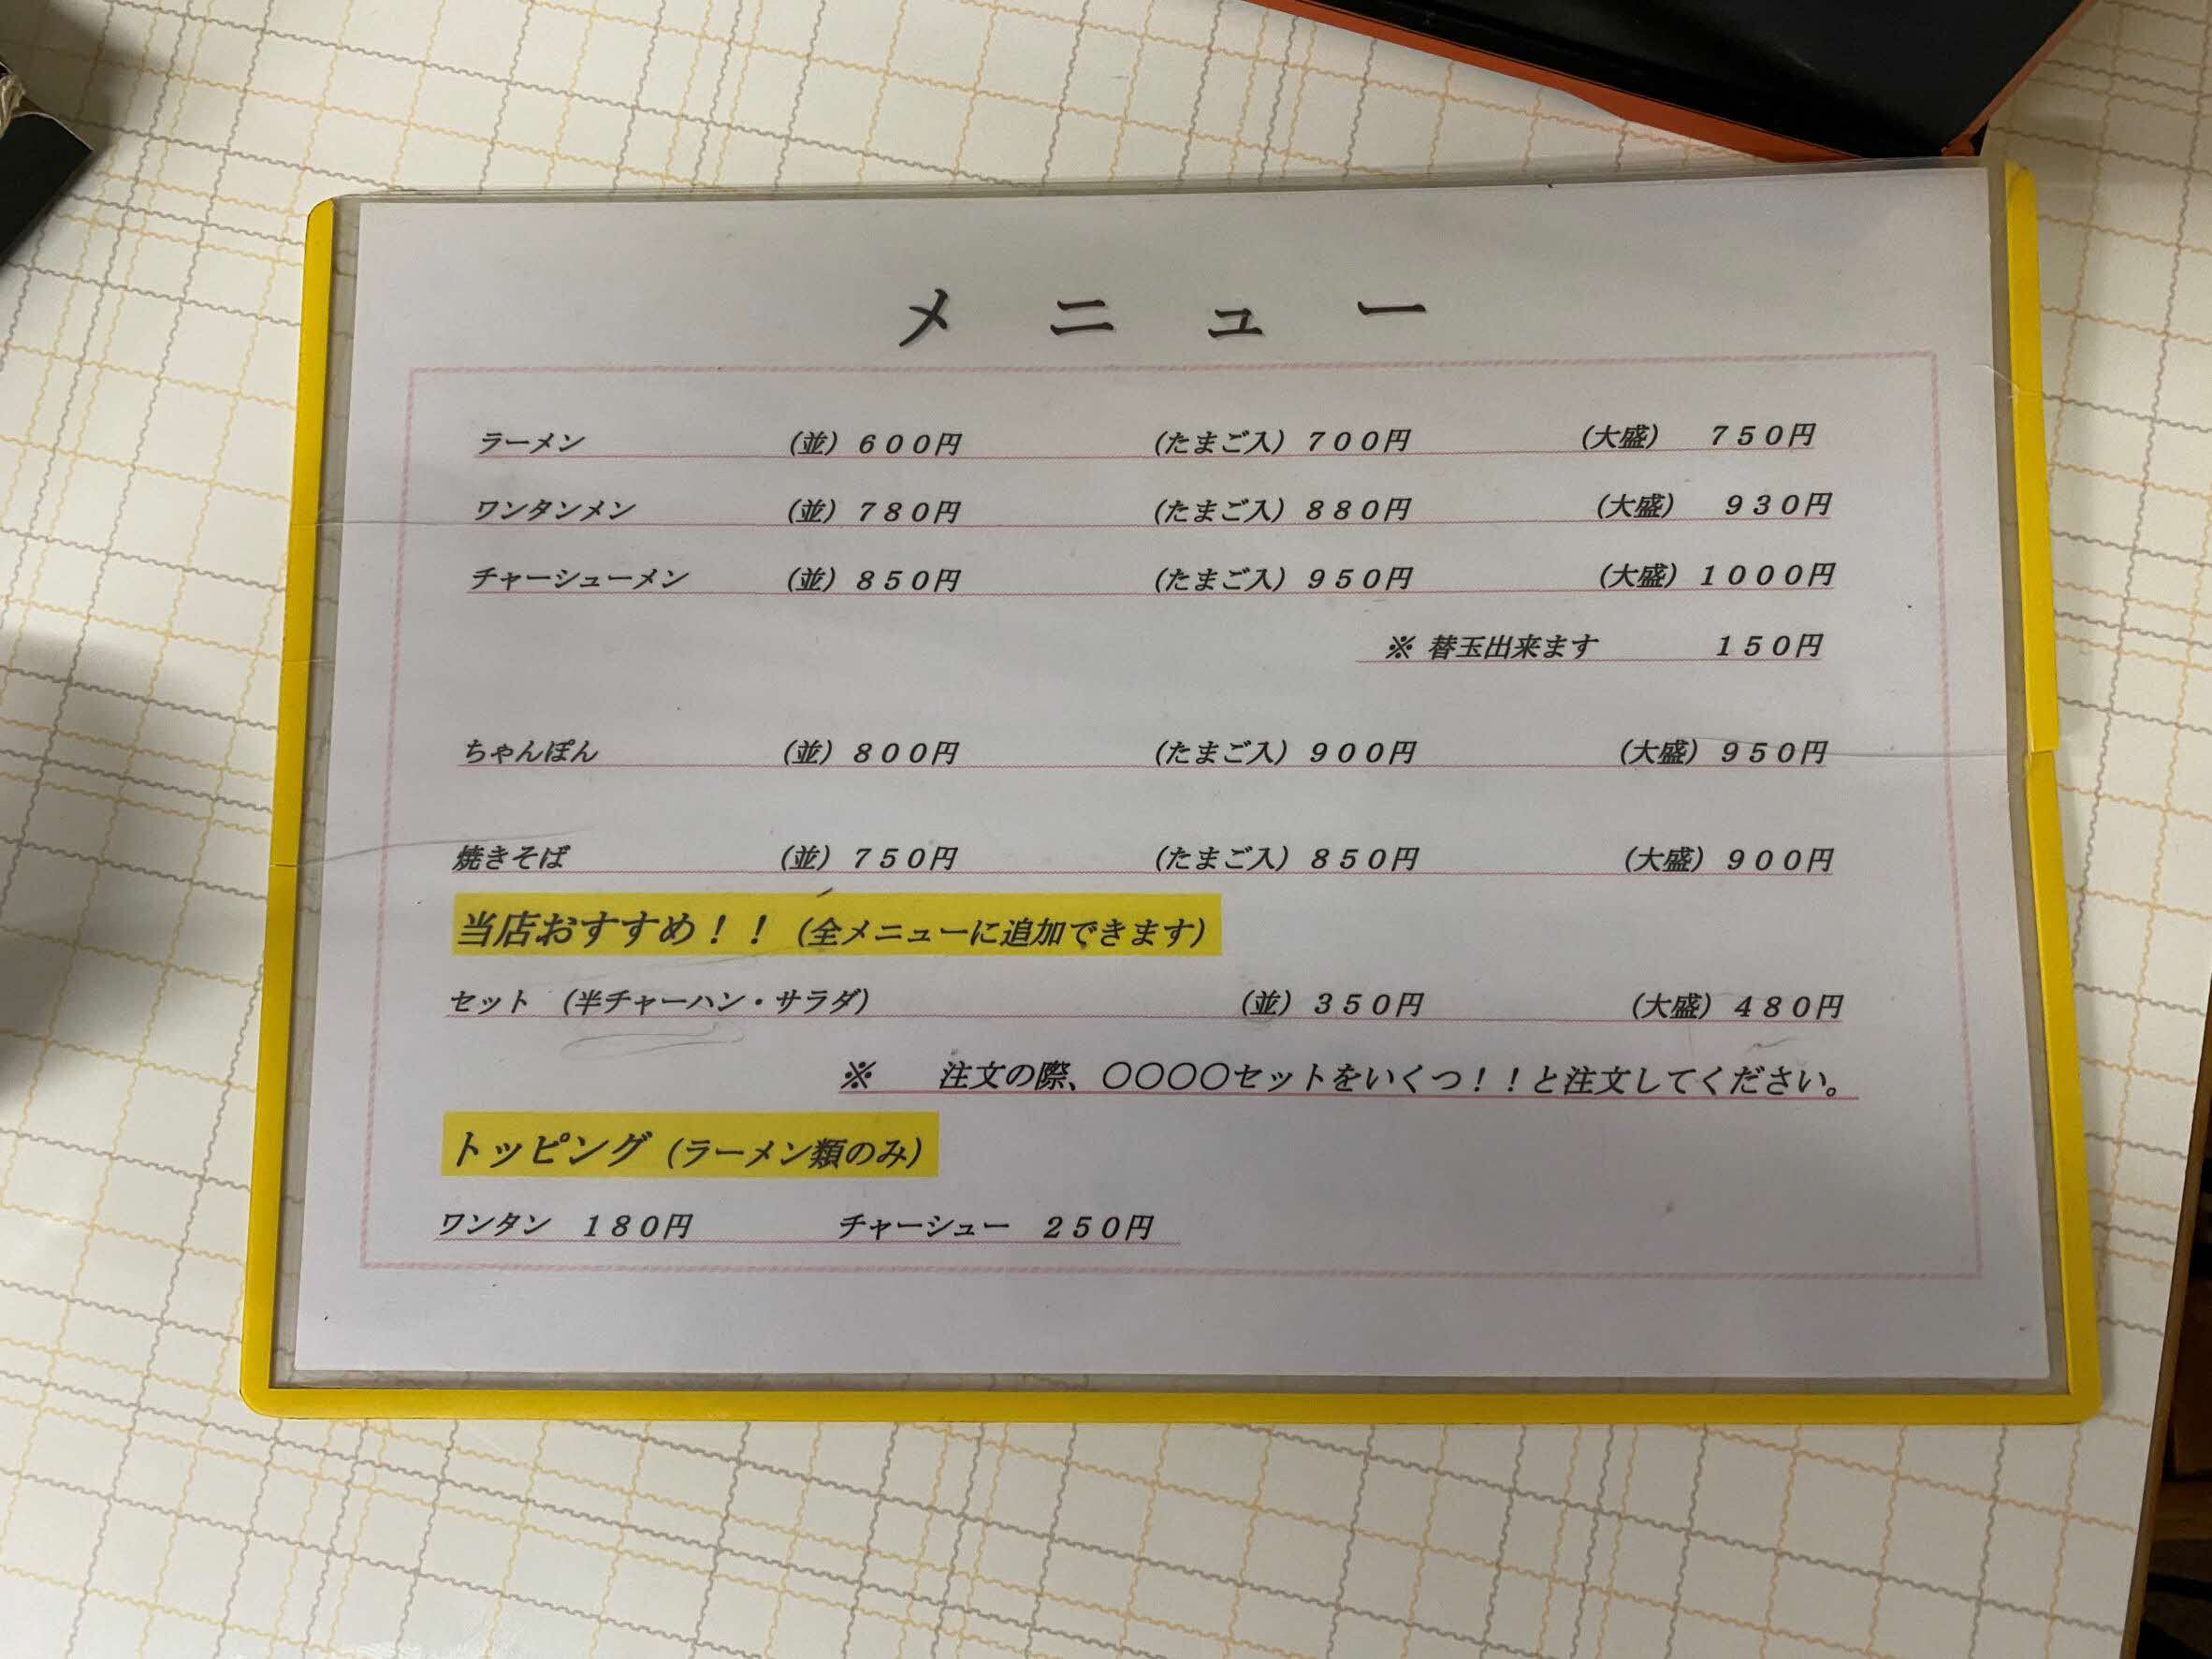 メニュー
ラーメン (並) 600円 (たまご入) 700円 (大盛) 750円
ワンタンメン (並) 780円 (たまご入) 880円 (大盛) 930円
チャーシューメン (並) 850円 (たまご入) 950円 (大盛) 1000円
※ 替玉出来ます 150円
ちゃんぽん (並) 800円 (たまご入) 900円 (大盛) 950円
焼きそば (並) 750円 (たまご入) 850円 (大盛) 900円
当店おすすめ！！ (全メニューに追加できます)
セット (半チャーハン・サラダ) (並) 350円 (大盛) 480円
※ 注文の際、〇〇〇〇セットをいくつ！！と注文してください。
トッピング (ラーメン類のみ)
ワンタン 180円 チャーシュー 250円